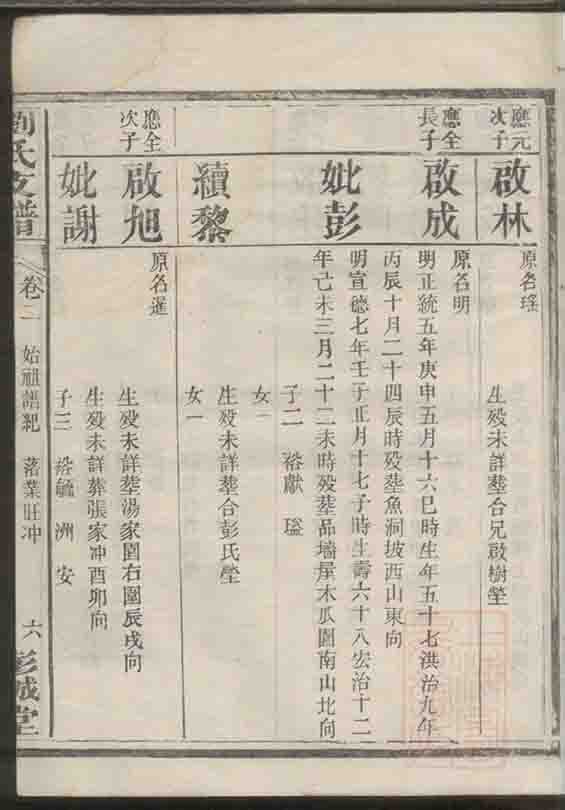 應元次子
啟林
原名瑤
生歿未詳塟合兄啟樹塋
應全長子
啟成
原名明
明正統五年庚申五月十六巳時生年五十七洪治九年
丙辰十月二十四辰時歿塟魚洞坡西山東向
妣彭
明宣德七年壬子正月十七子時生壽六十八宏治十二
年己未三月二十二未時歿塟品墻屋木瓜園南山北向
子二 裕獻 瑬
女一
續黎
生歿未詳塟合彭氏塋
女一
應全次子
啟旭
原名暹
生歿未詳塟湯家園右圍辰戌向
妣謝
生歿未詳葬張家冲酉卯向
子三 裕毓 洲 安
劉氏支譜
卷二
始祖語紀 落業旺冲
六
彭城堂